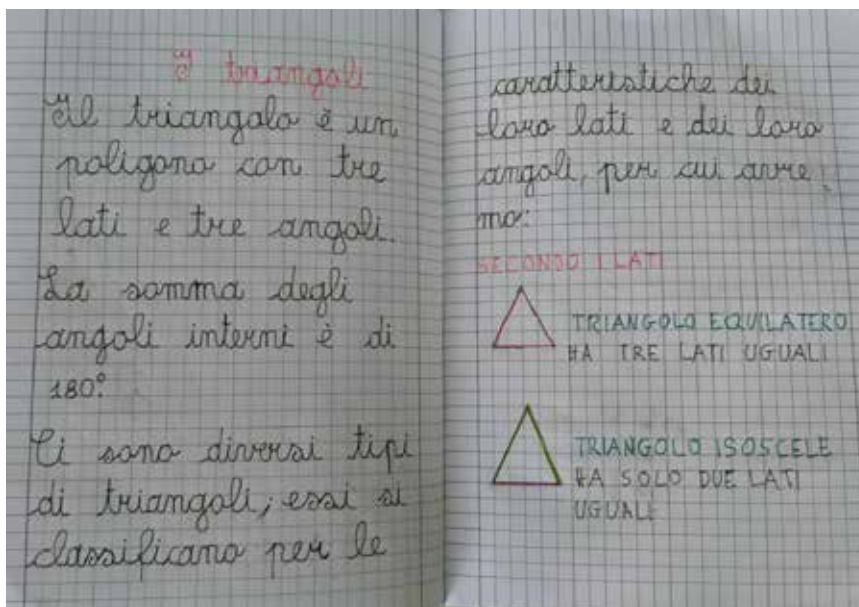 I triangoli
Il triangolo è un
poligono con tre
lati e tre angoli.
La somma degli
angoli interni è di
180°.
Ci sono diversi tipi
di triangoli; essi si
classificano per le
caratteristiche dei
loro lati e dei loro
angoli, per cui avre
mo:
SECONDO I LATI
TRIANGOLO EQUILATERO
HA TRE LATI UGUALI
TRIANGOLO ISOSCELE
HA SOLO DUE LATI
UGUALI